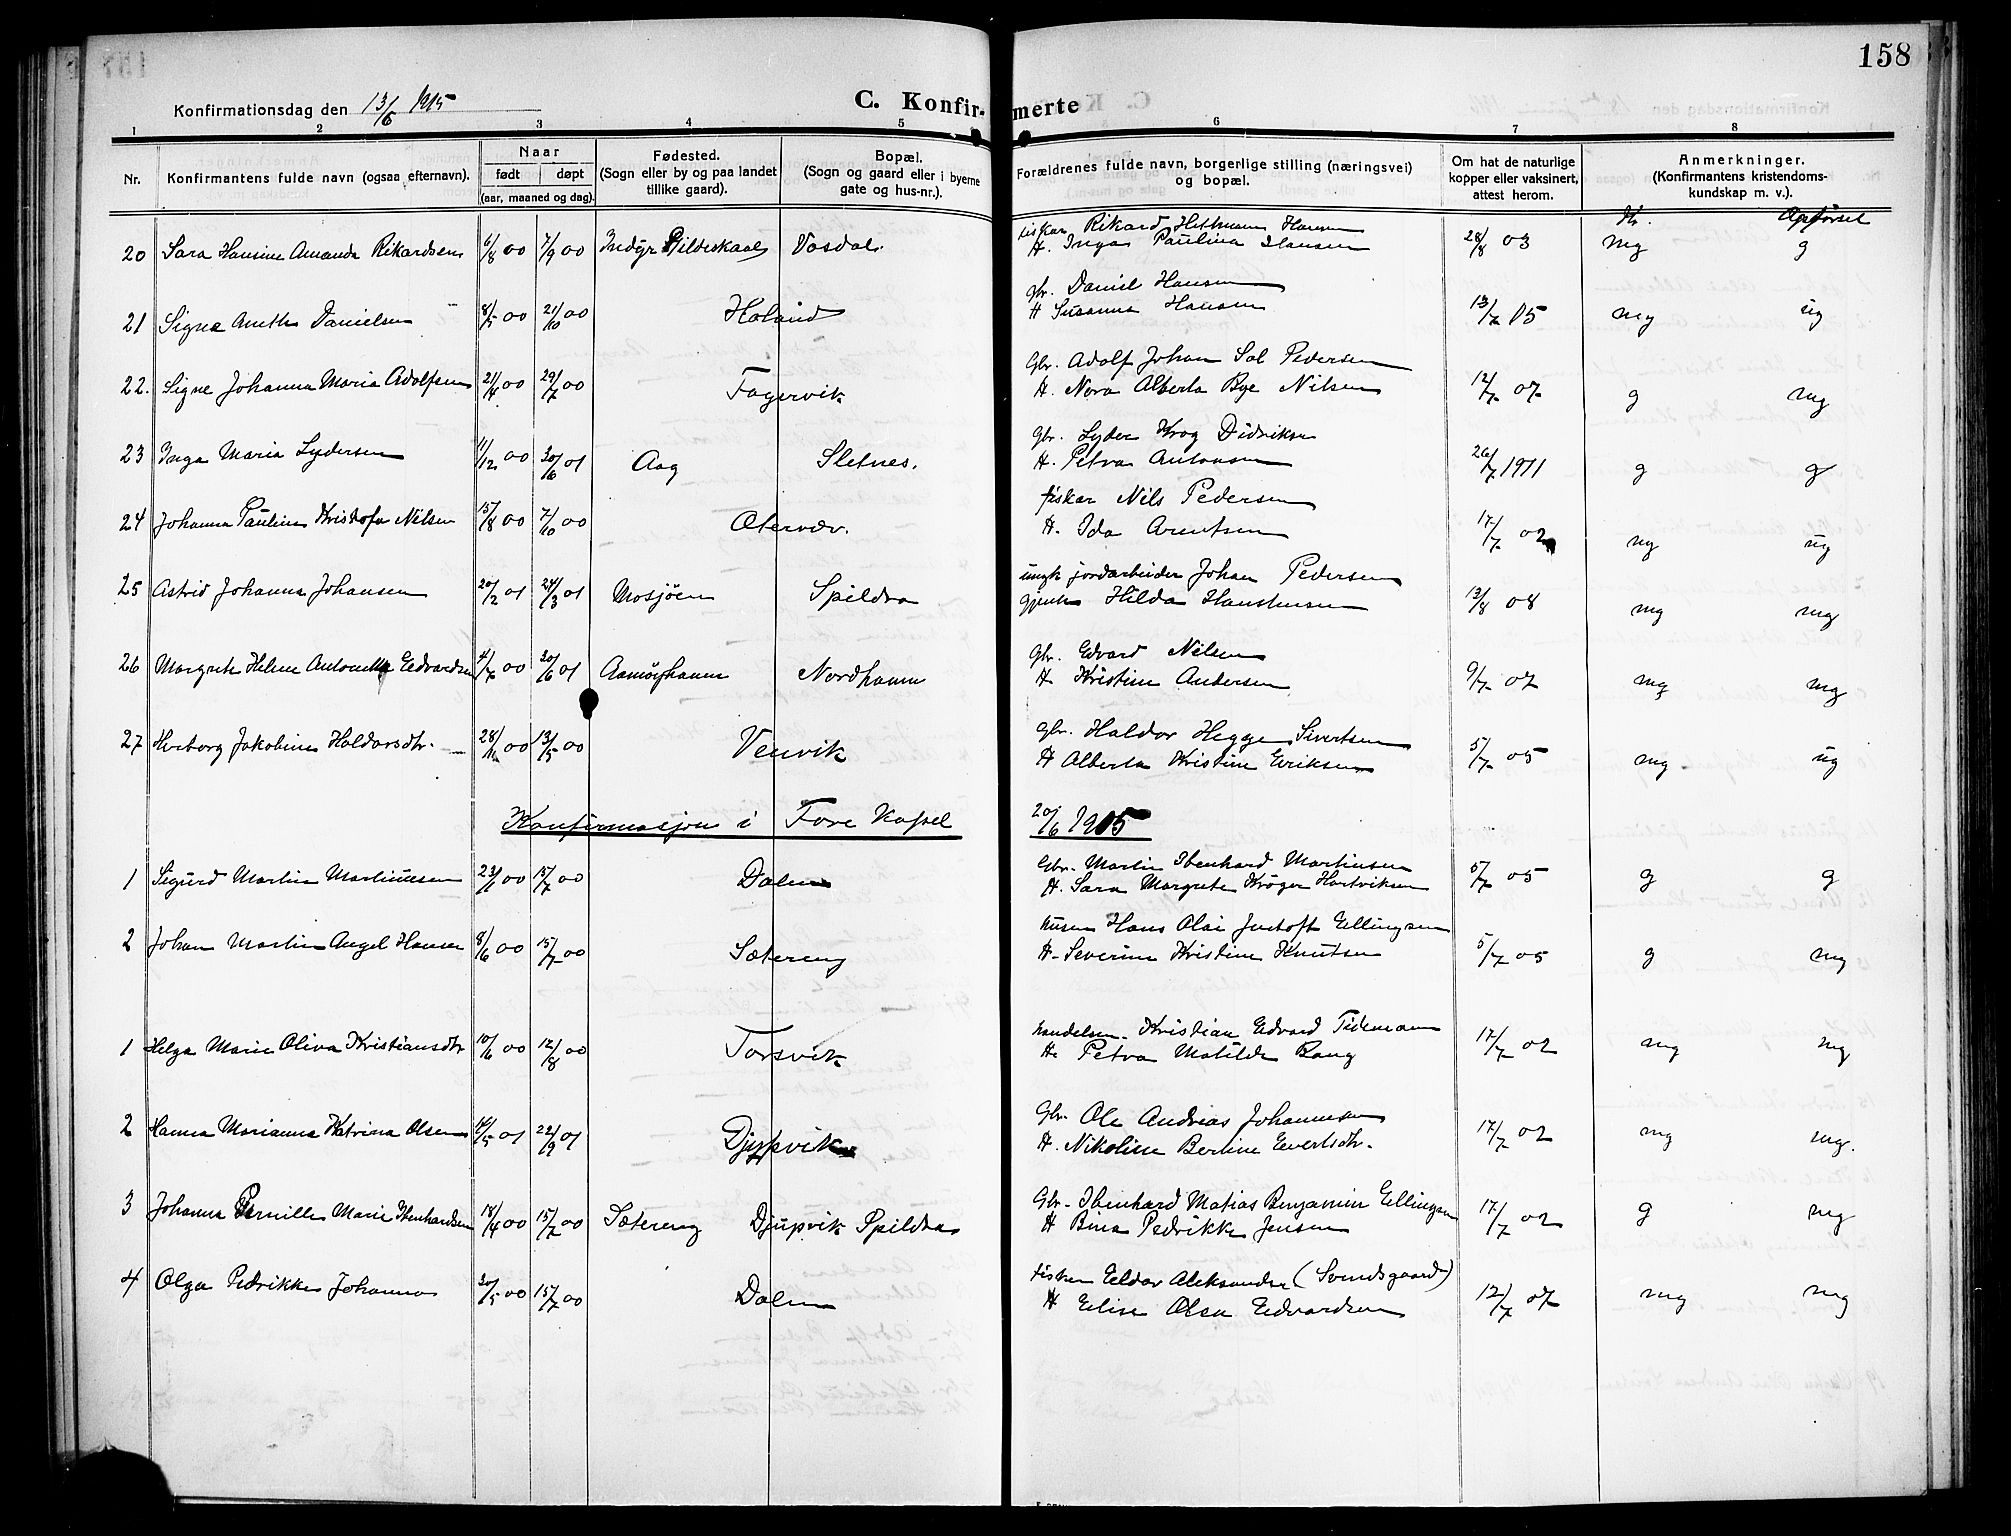 158
Konfirmationsdag den 13/6 1915
C. Konfirmerte
1 2 3 4 5 6 7 8
Nr.
Konfirmantens fulde navn (ogsaa efternavn).
Naar
født døpt
(aar, maaned og dag).
Fødested.
(Sogn eller by og paa landet
tillike gaard).
Bopæl.
(Sogn og gaard eller i byerne
gate og hus-nr.).
Forældrenes fulde navn, borgerlige stilling (næringsvei)
og bopæl.
Om hat de naturlige
kopper eller vaksinert,
attest herom.
Anmerkninger.
(Konfirmantens kristendoms-
kundskap m. v.).
Kr. Opførsel
fisker Rikard Hansen
20 Sara Hansine Amanda Rikardsen 6/8 00 7/9 00 Indyr Gildeskaal Vosdal. H. Inga Paulina Hansen 28/8 03 mg g
gbr. Daniel Hansen
21 Signe Aneth Danielsen 8/5 00 21/10 00 Høland H Susanna Hansen 13/7 05 mg ug
Gbr. Adolf Johan Sol Pedersen
22. Signe Johanna Maria Adolfsen 21/4 00 29/7 00 Fagervik H. Nora Alberta Bye Nilsen 12/7 07 g mg
Gbr. Lyder Krog Didriksen
23 Inga Maria Lydersen 11/12 00 30/6 01 Aag Sletnes. H. Petra Antonsen 26/7 1911 g g
fisker Nils Pedersen
24 Johanna Pauline Kristofa Nilsen 15/8 00 7/10 00 Oterver. H. Ida Arentsen 17/7 02 mg ug
ungk jordarbeider Johan Pedersen
25 Astrid Johanna Johansen 20/2 01 24/3 01 Mosjøen Spildra Hilda 13/8 08 mg mg
Gbr. Edvard Nilsen
26 Margrete Helene Antonette Edvardsen 4/7 00 30/6 01 Aamøyhamn Nordhamn H Kristine Andersen 9/7 07 mg mg
Gbr. Haldor Hegge Sivertsen
27 Herborg Jakobine Haldorsdtr. 28/11 00 13/5 00 Venvik H Alberta Kristine Eriksen 5/7 05 mg ug
Konfirmasjon i Fore Kapel 20/6 1915
Gbr. Martin Ibenhard Martinsen
1 Sigurd Martin Martinusen 23/1 00 15/7 00 Dalen H. Sara Margrete Krøger Hartviksen 5/7 05 g g
Hans Olai Justoft Ellingsen
2 Johan Martin Angel Hansen 8/6 00 15/7 00 Sætereng H. Severine Kristine Knutsen 5/7 05 g mg
handelsm. Kristian Edvard Tidemann
1 Helga Marie Oliva Kristiansdtr 10/6 00 12/8 00 Torsvik H. Petra Matilde Bang 17/7 02 mg mg
Gbr. Ole Andreas Johannesen
2 Hanna Marianna Katrina Olsen 14/5 01 22/9 01 Djupvik H. Nikoline Berline Evertsdtr. 17/7 02 mg mg.
Gbr. Ibenhard Matias Benjamin Ellingsen
3 Johanna Pernille Marie Ibenhardsen 18/4 00 15/7 00 Sætereng Djupvik Spildra H Bina Pedrikke Jensen 17/7 02 g mg
fisker Eldor Aleksander (Svendsgaard)
4 Olga Pedrikke Johanna 30/5 00 15/7 00 Dalen H Elise Olsa Edvardsen 12/7 07 mg mg